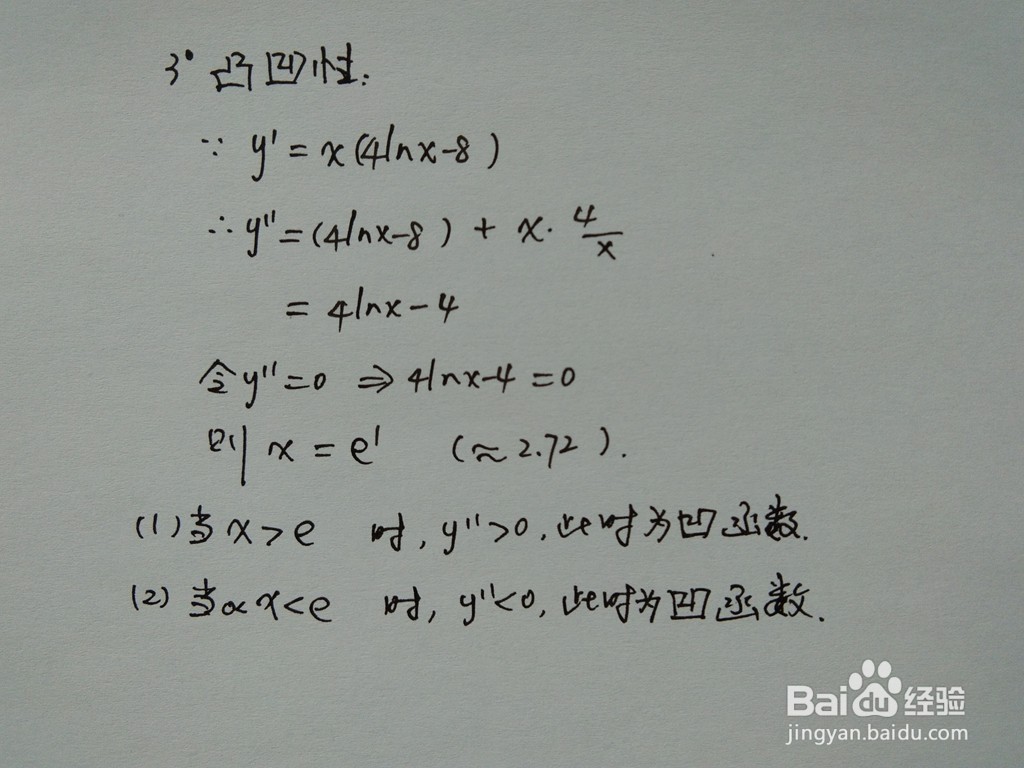 3° 凸凹性:
∵ y' = x(4lnx-8)
∴ y'' = (4lnx-8) + x·4/x
= 4lnx-4
令y''=0 ⇒ 4lnx-4=0
则 x = e¹ (≈2.72).
(1) 当x>e 时, y''>0, 此时为凹函数.
(2) 当0<x<e 时, y''<0, 此时为凹函数.
Baidu 经验
jingyan.baidu.com